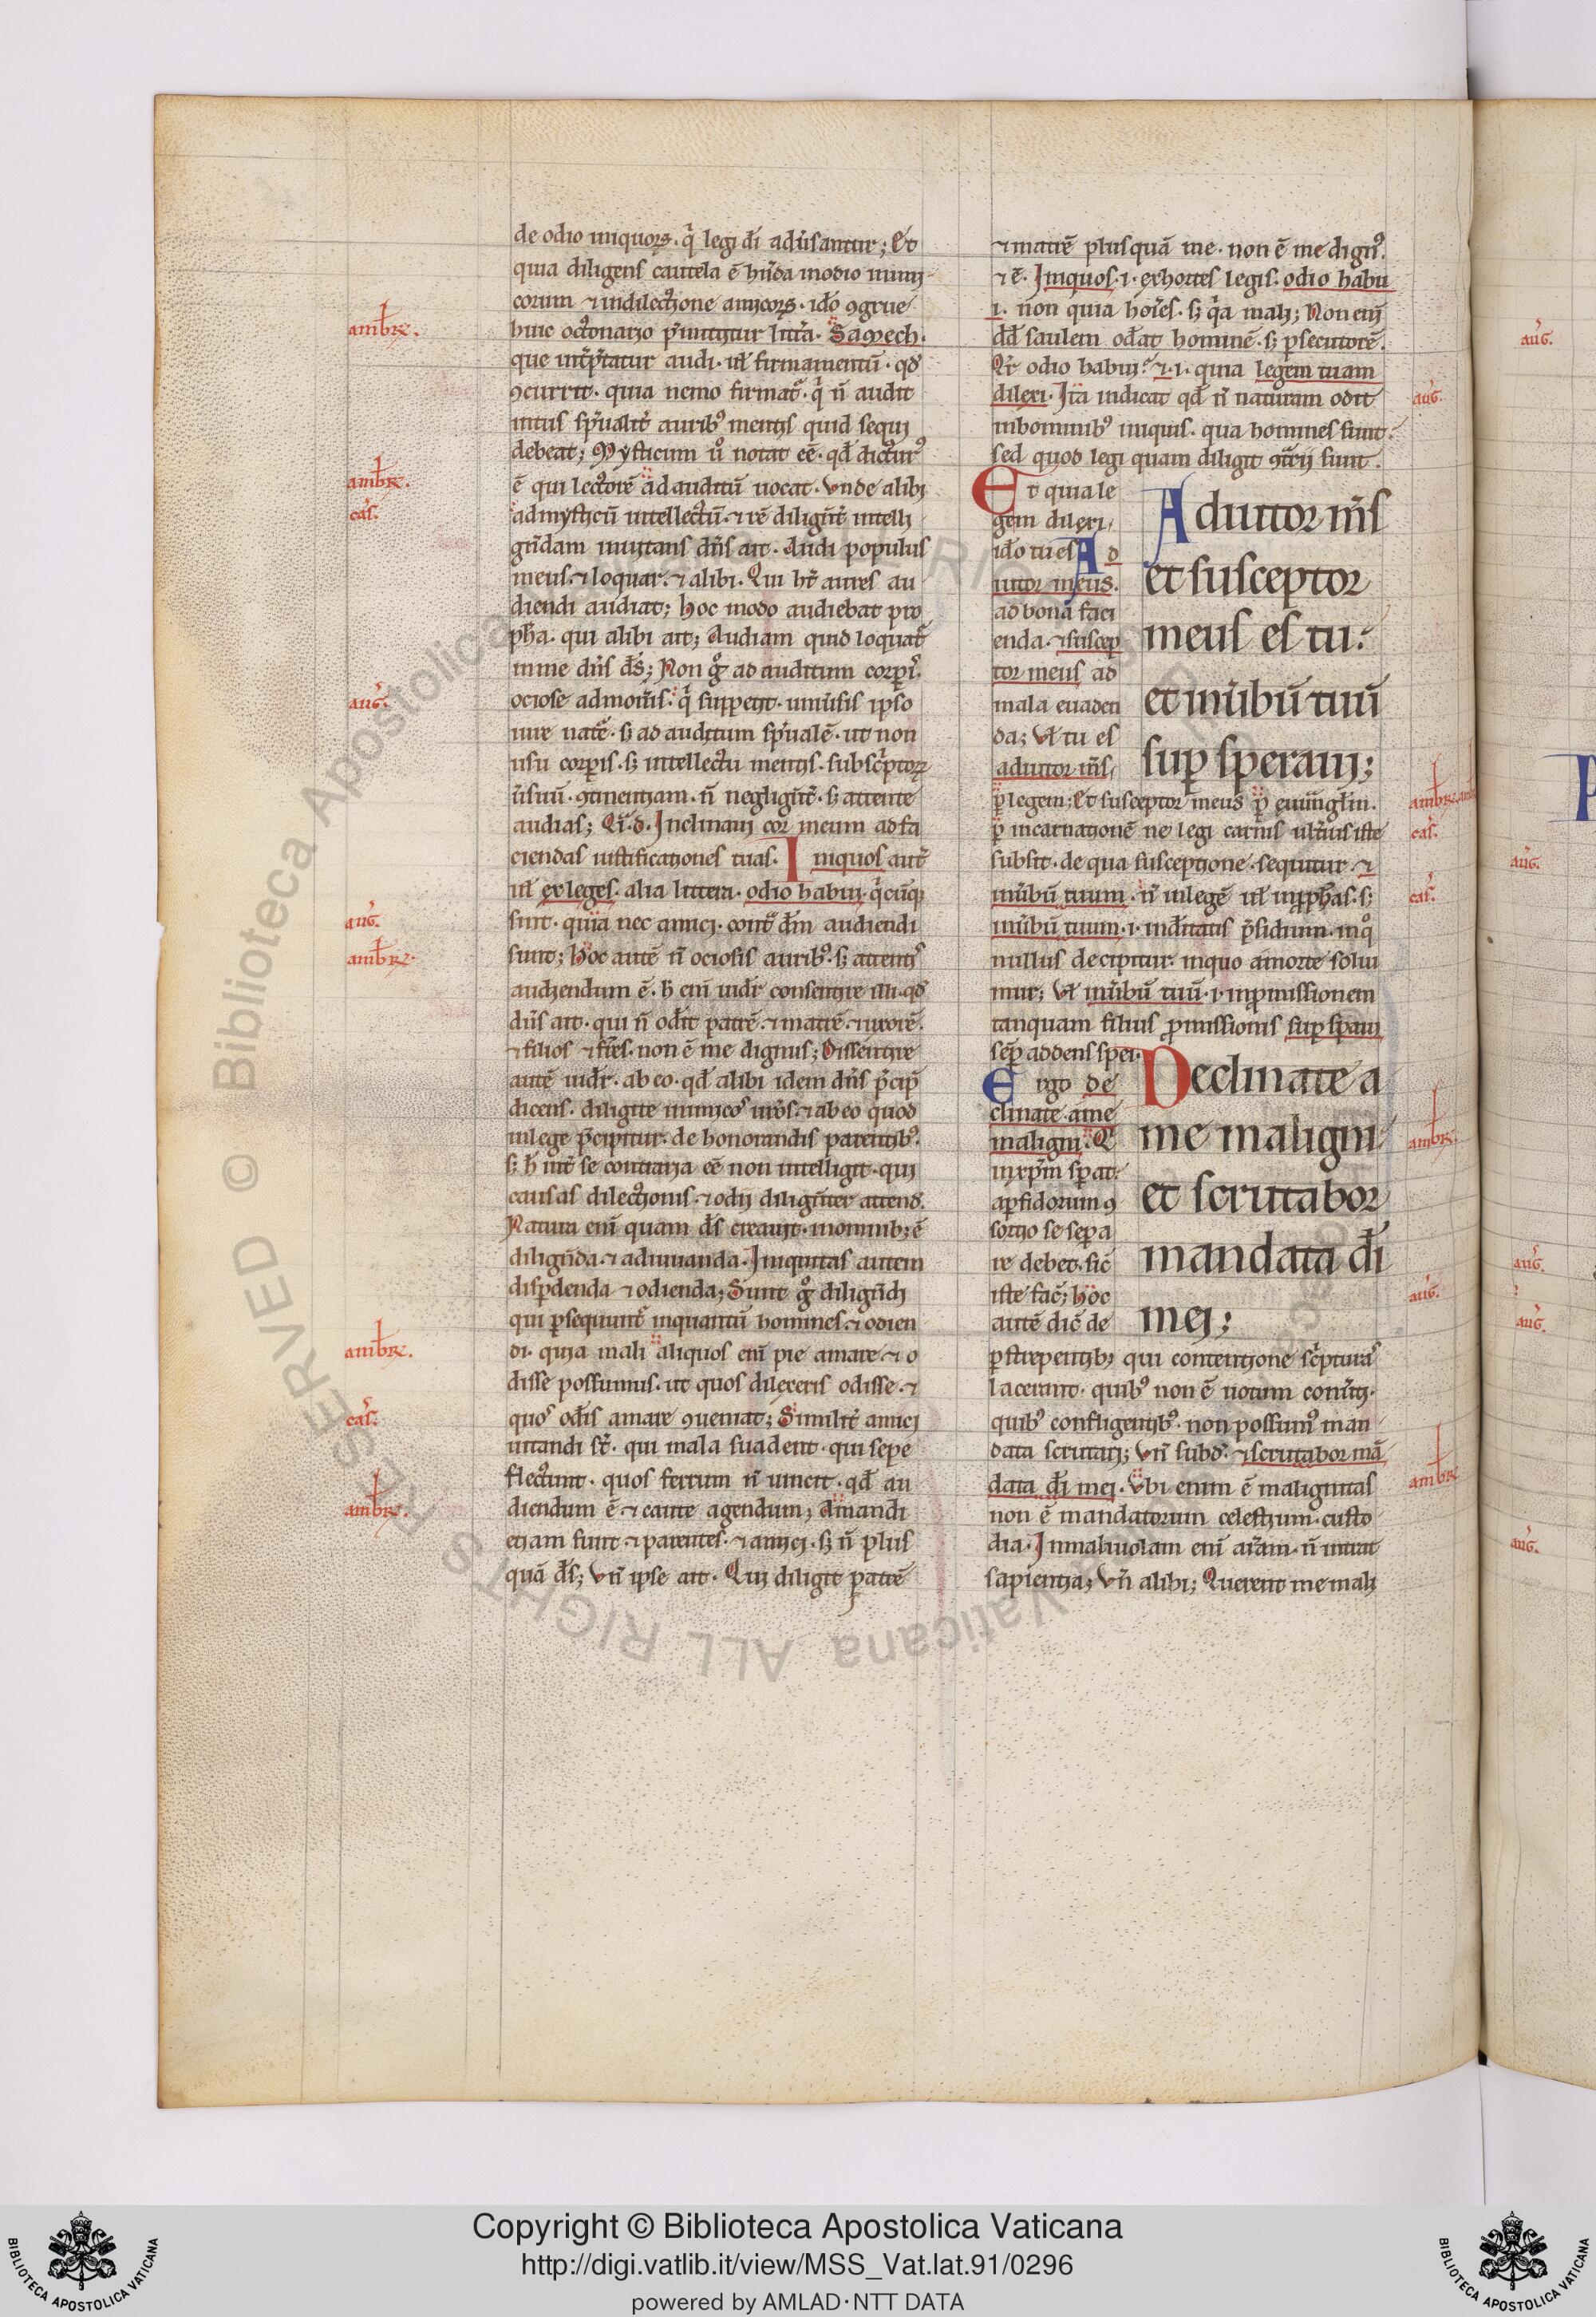 de odio iniquoꝝ. q̇ legi dī adũsantur; Et
quia diligens cautela ē hñda in odio inimi
corum ⁊ in dilectione amicoꝝ. ido ꝯgrue
huic octonario p̄mittitur littã. Samech.
que intp̃tatur audi. ul firmamentũ. qd̄
ꝯcurrit. quia nemo firmat̃. q̇ ñ audit
intus sp̃ualit̃ aurib᷒ mentis quid sequi
debeat; Mysticum u̇o notat eē. qd̄ dictur᷒
ē qui lectorē ad auditũ uocat. Vnde alibi
ad mysticũ intellectũ. ⁊ rē diligñt̃ intelli
gñdam inuitans dñs ait. Audi populus
meus. ⁊ loquar. ⁊ alibi. Qui ht̃ aures au
diendi audiat; Hoc modo audiebat pro
pha. qui alibi ait; Audiam quid loquat̃
in me dñs ds̄; Non g̊ ad auditum corpis
ociose admonĩs. q̇ suppetit. uniũsis ipso
iure nat̃e. sꝫ ad auditum sp̃ualē. ut non
usu corpis. sꝫ intellectu mentis. subscptoꝝ
ũsuũ. ꝯtinentiam. ñ negligñt̃. sꝫ attente
audias; Qi.d. Inclinaui cor meum ad fa
ciendas iustificationes tuas. Iniquos aut̃
ul exleges. alia littera. odio habui. q̇cũqꝫ
sunt. quia nec amici. cont̃ dm̄ audiendi
sunt; Hoc autē ñ ociosis aurib᷒. sꝫ attentis
audiendum ē. h̄ eni uidr̃ consentire illi. qd̄
dñs ait. qui ñ odit patrē. ⁊ matrē. ⁊ uxorē.
⁊ filios ⁊ frēs. non ē me dignus; Dissentire
autē uidr̃. ab eo. qd̄ alibi idem dñs p̄cip̄
dicens. diligite inimicos uros. ⁊ ab eo quod
in lege p̄cipitur. de honorandis parentib᷒.
sꝫ h̄ int̃ se contraria eē non intelligit. qui
causas dilectionis. ⁊ odii diligñter attend.
Natura enĩ quam ds̄ creauit. in ominibꝫ ē
diligñda. ⁊ adiuuanda. Iniquitas autem
disꝑdenda ⁊ odienda; Sunt g̊ diligñdi
qui ꝑsequunt̃ inquantũ homines. ⁊ odien
di. quia mali aliquos enĩ pie amare. ⁊ o
disse possumus. ut quos dilexeris odisse. ⁊
quos odis amare ꝯueniat; Similit̃ amici
uitandi st̃. qui mala suadent. qui sepe
flectunt. quos ferrum ñ uincit. qd̄ au
diendum ē. ⁊ caute agendum; Amandi
etiam sunt. ⁊ parentes. ⁊ amici. sꝫ ñ plus
quā ds̄; Vñ ipse ait. Qui diligit patrē
⁊ matrē plus quā me. non ē me dign᷒.
⁊ c̄. Iniquos .i. exhortes legis. odio habu
i. non quia hoĩes. sꝫ q̇a mali; Non enĩ
dd̄ saulem odat hominē. sꝫ ꝑsecutorē.
Qr̃ odio habui? ⁊ .i. quia legem tuam
dilexi. Ita indicat qd̄ ñ naturam odit
in hominib᷒ iniquis. qua homines sunt.
sed quod legi quam diligit ꝯtrii sunt.
Et quia le
gem dilexi,
ido tu es Ad
iutor meus.
ad bona faci
enda. ⁊ suscep
tor meus ad
mala euaden
da; Vl tu es
adiutor ms̄,
Adiutor ms̄
et susceptor
meus es tu.
et in ũbũ tuũ
suꝑ speraui;
ꝑ legem; Et susceptor meus ꝑ euũgl̄m.
ꝑ incarnationē ne legi carnis ult̃ius iste
subsit. de qua susceptione. sequitur. ⁊
in ũbũ tuum. ñ in legē ul in ꝓphas. sꝫ
in ũbũ tuum .i. in ditatis p̃sidium. in q̊
nullus decipitur. in quo a morte solui
mur; Vl in ũbũ tuũ .i. in ꝓmissionem
tanquam filius ꝓmissionis suꝑ spaui
seꝑ addens spei.
Ergo de
clinate a me
maligni. Q
in xp̄m spat.
a ꝑfidorum ꝯ
sortio se sepa
re debet. sic
iste fac̄; Hoc
autē dic̄ de
Declinate a
me maligni
et scrutabor
mandata dī
mei;
ꝑstrepentibꝫ qui contentione sc̃pturas
lacerant. quib᷒ non ē uotum conũti.
quib᷒ confligentib᷒. non possum᷒ man
data scrutari; Vñ subd̄. ⁊ scrutabor mā
data dī mei. Vbi enim ē malignitas
non ē mandatorum celestium. custo
dia. In maliuolam enĩ aĩam. ñ intrat
sapientia; Vñ alibi; Querent me mali
ambr̄.
ambr̄.
cas̄.
aug̃.
aug̃.
ambr̄.
ambr̄.
cas̄.
ambr̄.
aug̃.
ambr̄.
cas̄.
cas̄.
ambr̄.
aug̃.
ambr̄.
aug̃.
aug̃.
aug̃.
aug̃.
aug̃.
© Biblioteca Apostolica Vaticana ALL RIGHTS RESERVED
Copyright © Biblioteca Apostolica Vaticana
http://digi.vatlib.it/view/MSS_Vat.lat.91/0296
powered by AMLAD·NTT DATA
BIBLIOTECA APOSTOLICA VATICANA
BIBLIOTECA APOSTOLICA VATICANA